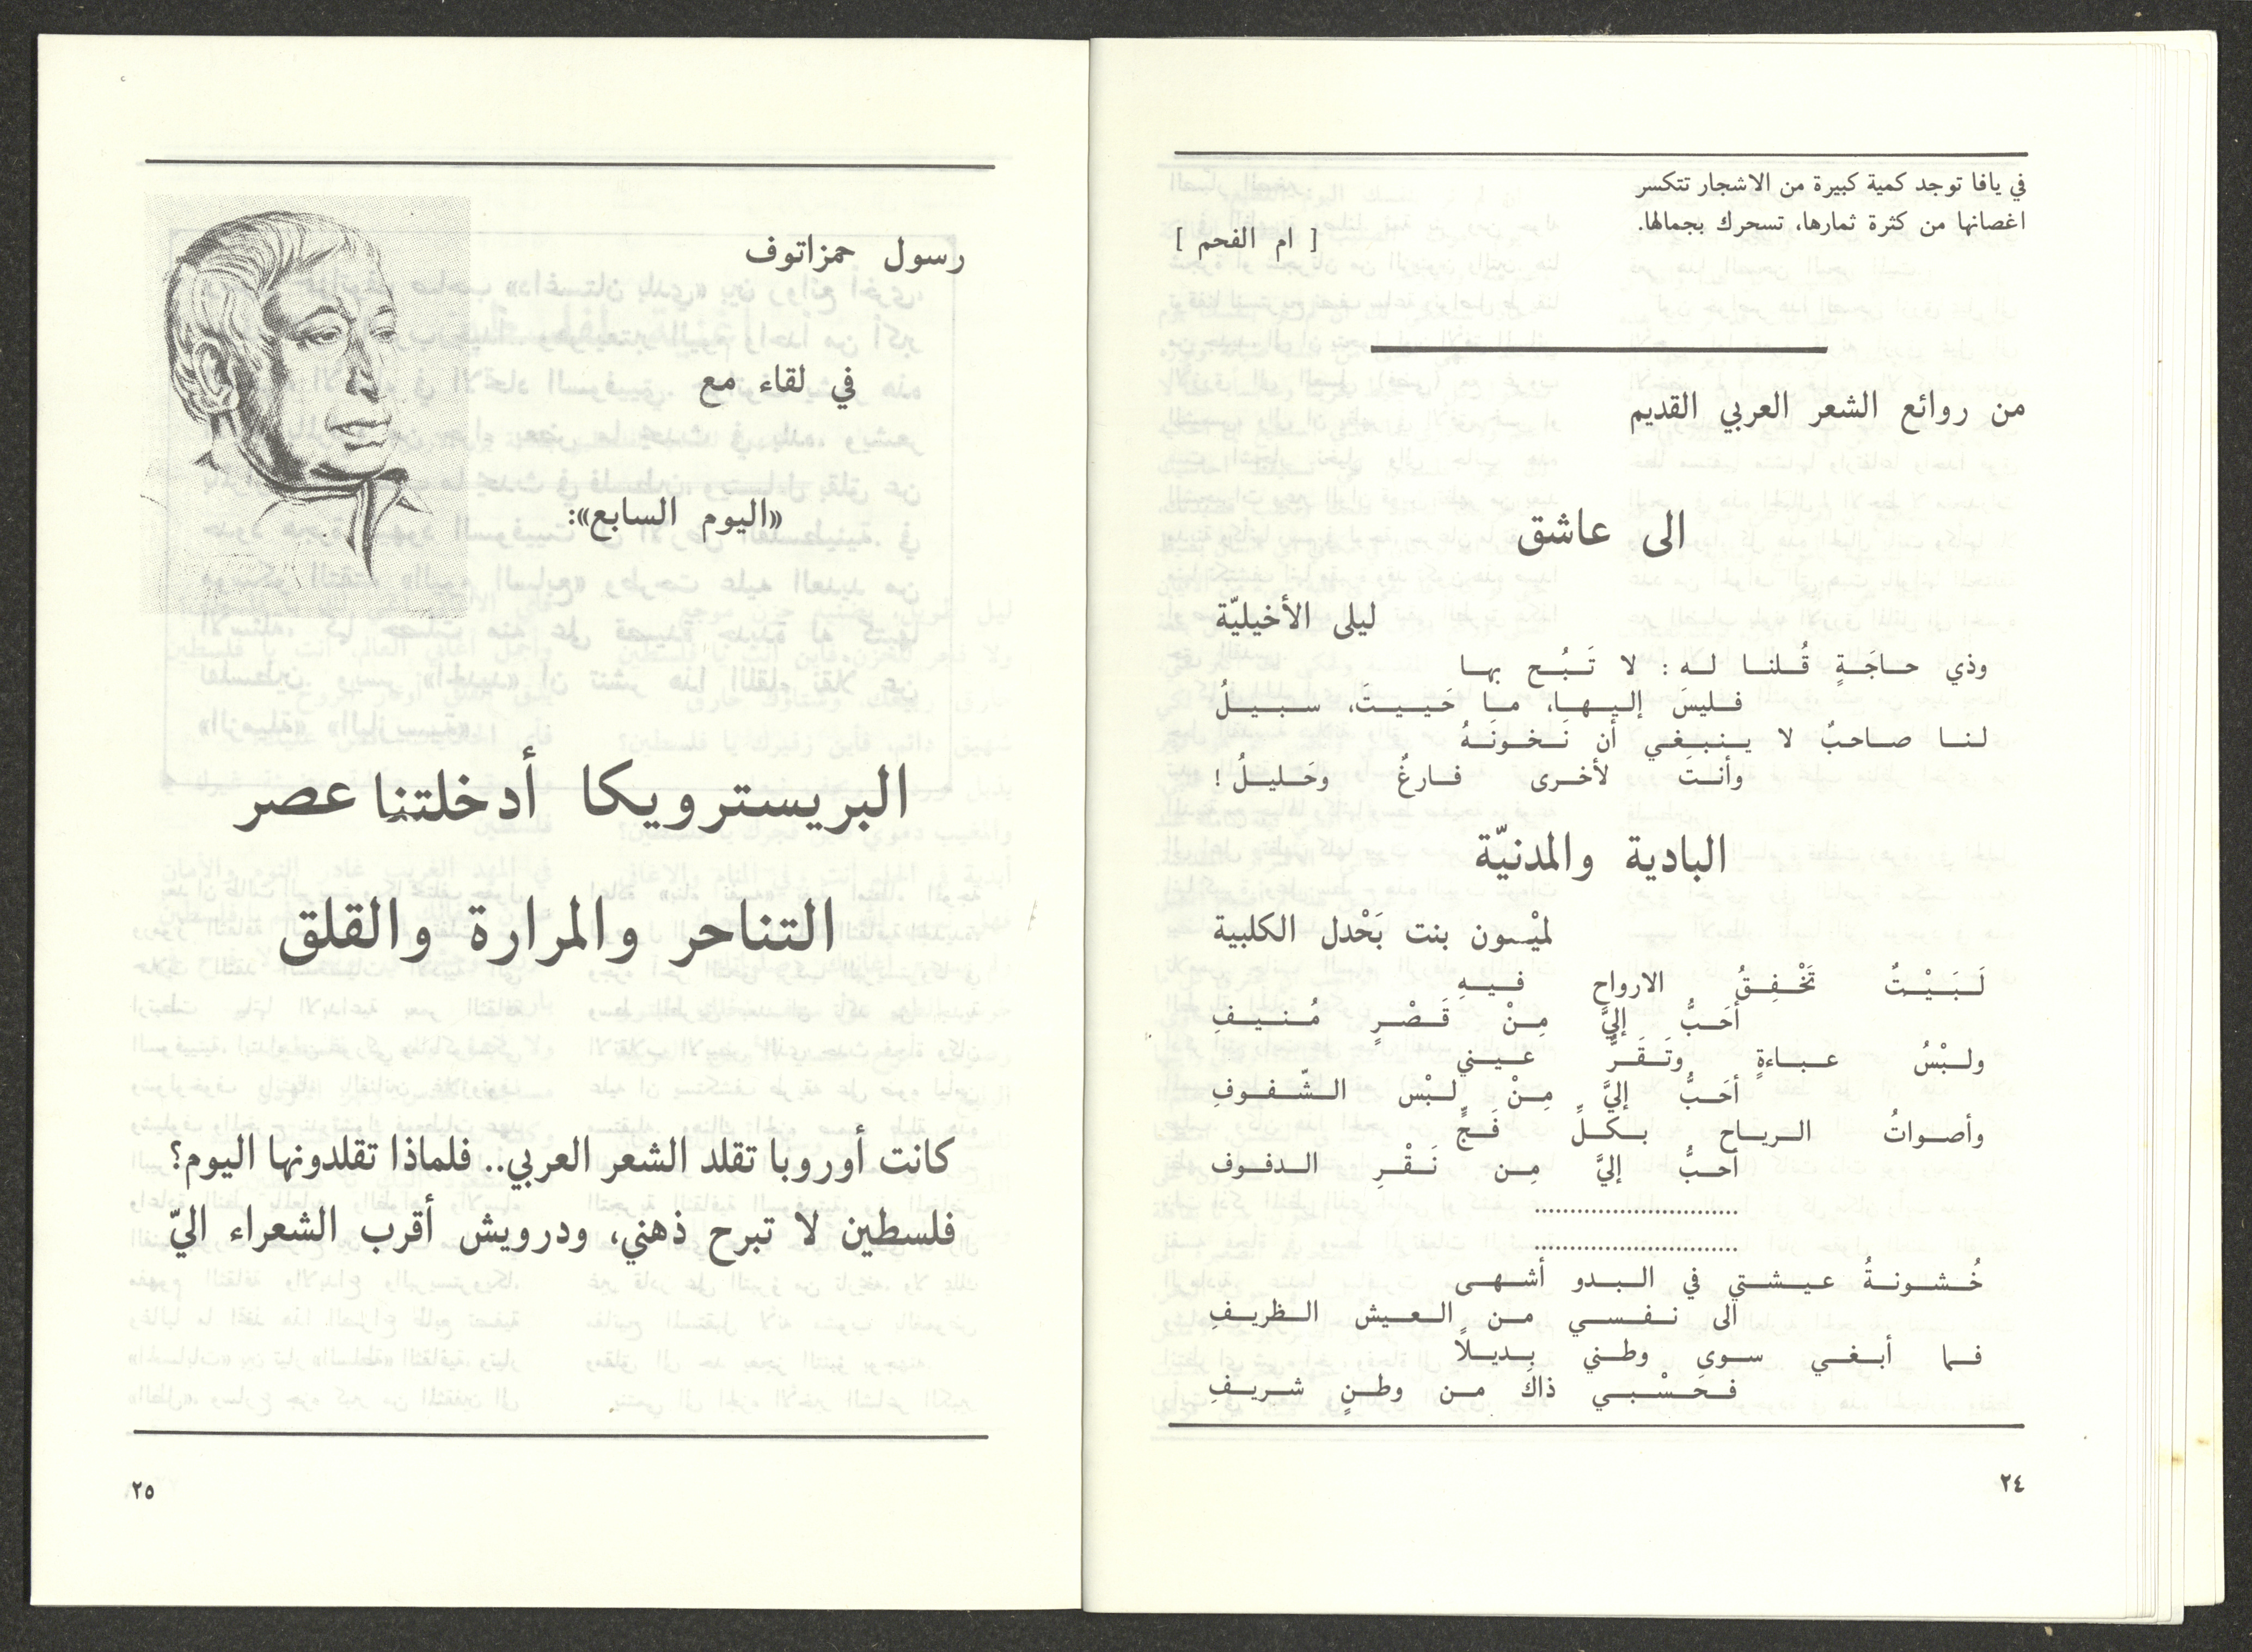 في يافا توجد كمية كبيرة من الاشجار تتكسر
اغصانها من كثرة ثمارها، تسحرك بجمالها.
[ ام الفحم ]
من روائع الشعر العربي القديم
الى عاشق
ليلى الأخيليّة
وذي حاجَةٍ قُلنا له : لا تَبُح بها
فليسَ إليها، ما حَييتَ، سبيلُ
لنا صاحبٌ لا ينبغي أن نَخونَهُ
وأنتَ لأخرى فارغٌ وحَليلُ !
البادية والمدنيّة
لميْسون بنت بَحْدل الكلبية
لَبَيْتٌ تَخْفِقُ الارواح فيهِ
أحَبُّ إليَّ مِنْ قَصْرٍ مُنيفِ
ولبْسُ عباءةٍ وتَقَرَّ عيني
أحَبُّ إليَّ مِنْ لبْس الشّفوفِ
وأصواتُ الرياح بكلِّ فَجٍّ
أحبُّ إليَّ مِن نَقْرِ الدفوف
..............................
..............................
خُشونةُ عيشتي في البدو أشهى
الى نفسي من العيش الظريفِ
فما أبغي سوى وطني بديلاً
فحَسْبي ذاكَ من وطنٍ شريفِ
٢٤
رسول حمزاتوف
في لقاء مع
«اليوم السابع»:
البريسترويكا أدخلتنا عصر
التناحر والمرارة والقلق
كانت أوروبا تقلد الشعر العربي.. فلماذا تقلدونها اليوم؟
فلسطين لا تبرح ذهني، ودرويش أقرب الشعراء اليّ
٢٥